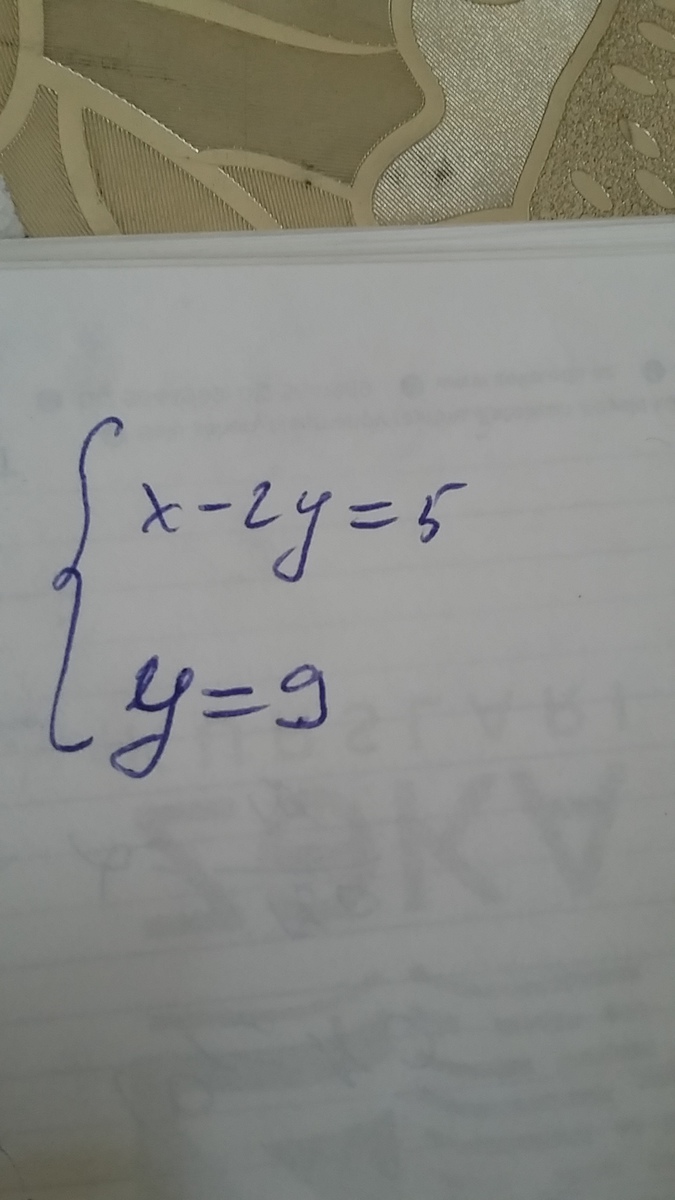 x-2y=5
y=9